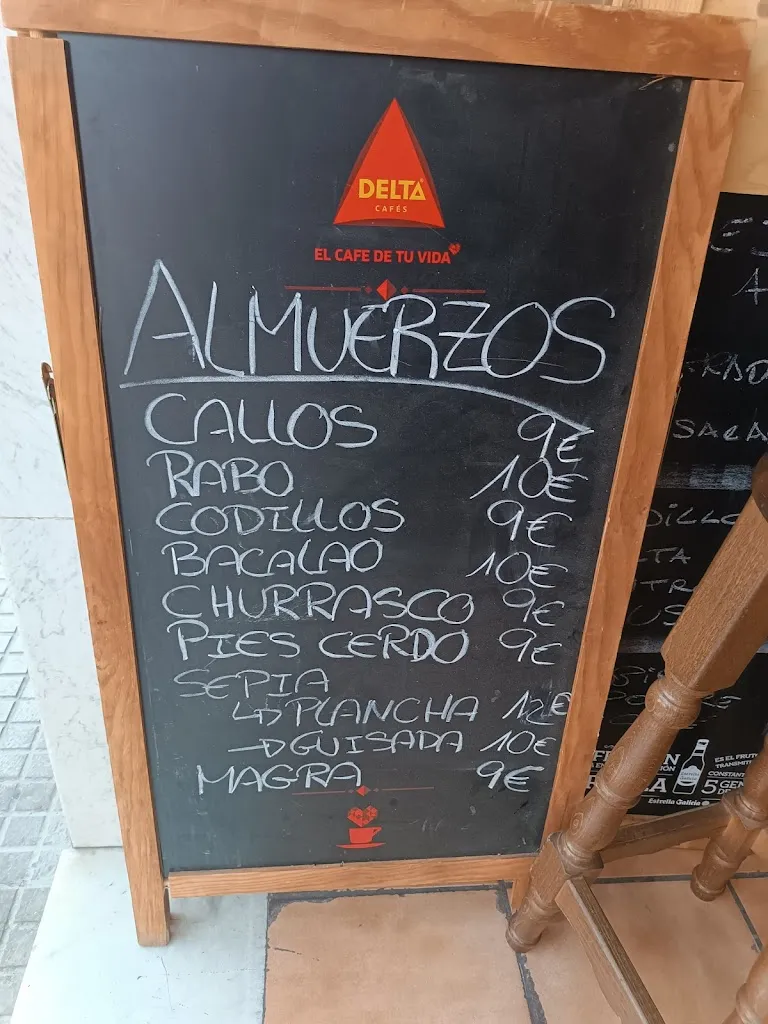 DELTA
CAFÉS
EL CAFE DE TU VIDA
ALMUERZOS
CALLOS 9€
RABO 10€
CODILLOS 9€
BACALAO 10€
CHURRASCO 9€
PIES CERDO 9€
SEPIA
↳ PLANCHA 12€
→ GUISADA 10€
MAGRA 9€
ES EL FRUTO
Estrella Galicia